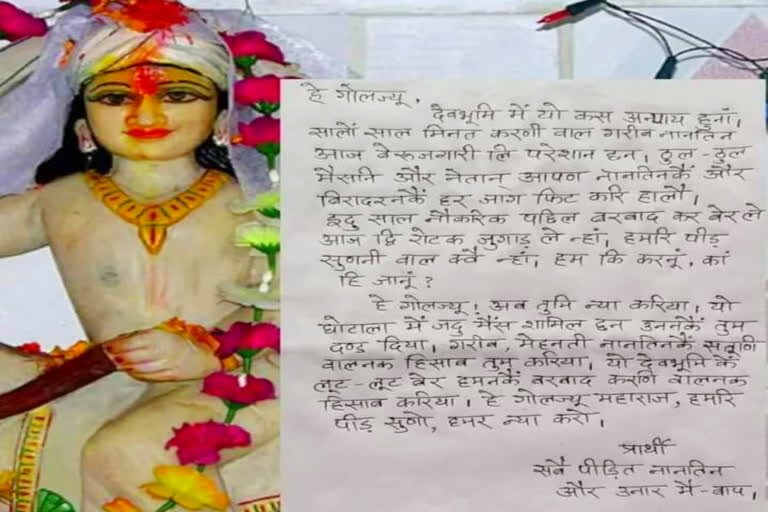 हे गोलज्यू,
देवभूमि में यो कस अन्याय हुनां,
सालों साल मिनत करणी वाल गरीब नानतिन
आज बेरुजगारी लि परेशान हन। ठुल-ठुल
मैंसनि और नेतान् आपण नानतिनकैं और
बिरादरनकैं हर जाग फिट करि हालौ।
इदु साल नौकरिक पछिल बरबाद कर बेर ले
आज द्वि रोटक जुगाड़ ले न्हां, हमरि पीड़
सुणनी वाल क्वै न्हां, हम कि करनूं, कां
हि जानूं?
हे गोलज्यू! अब तुमि न्या करिया, यो
घोटाला में जदु मैंस शामिल छन उननकैं तुम
दण्ड दिया। गरीब, मेहनती नानतिनकैं सतूणि
वालनक हिसाब तुम करिया। यो देवभूमि कैं
लूट-लूट बेर हमनकैं बरबाद करणि वालनक
हिसाब करिया। हे गोलज्यू महाराज, हमरि
पीड़ सुणो, हमर न्या करो।
प्रार्थी
सबै पीड़ित नानतिन
और उनार मै-बाप।